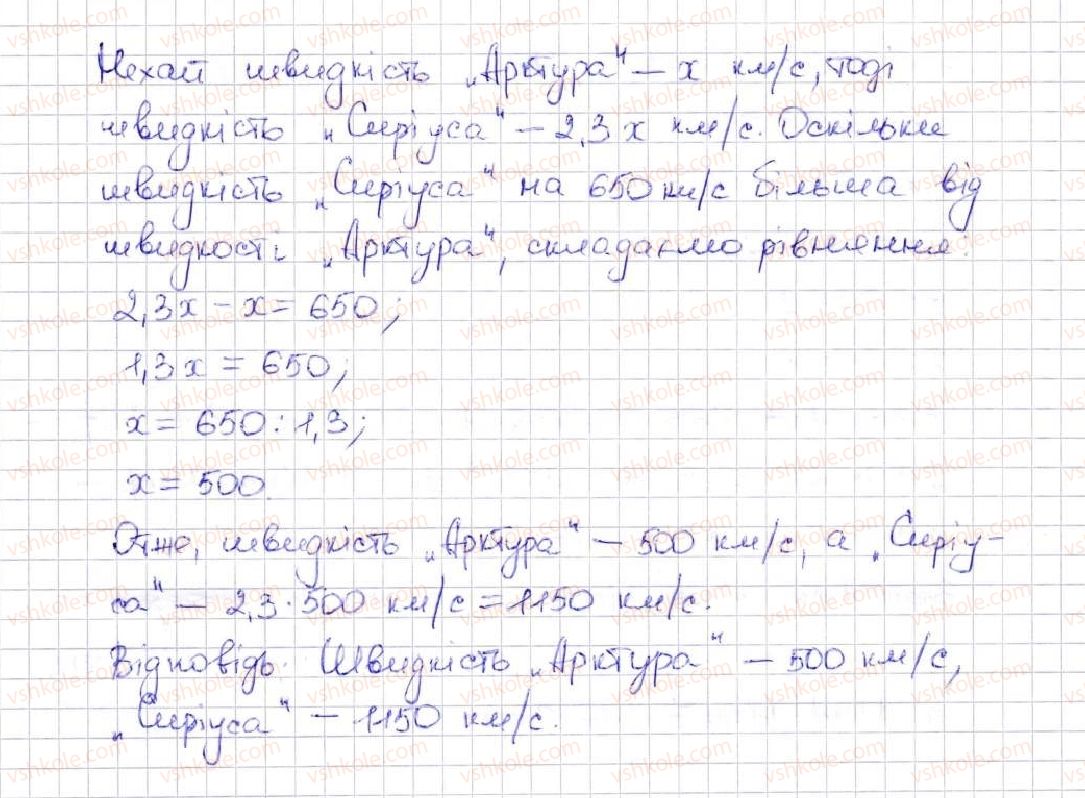 Нехай швидкість „Арктура" – x км/с, тоді
швидкість „Сиріуса" – 2,3x км/с. Оскільки
швидкість „Сиріуса" на 650 км/с більша від
швидкості „Арктура", складаємо рівняння:
2,3x - x = 650;
1,3x = 650;
x = 650 : 1,3;
x = 500.
Отже, швидкість „Арктура" – 500 км/с, а „Сиріу-
са" – 2,3 · 500 км/с = 1150 км/с.
Відповідь. Швидкість „Арктура" – 500 км/с,
„Сиріуса" – 1150 км/с.